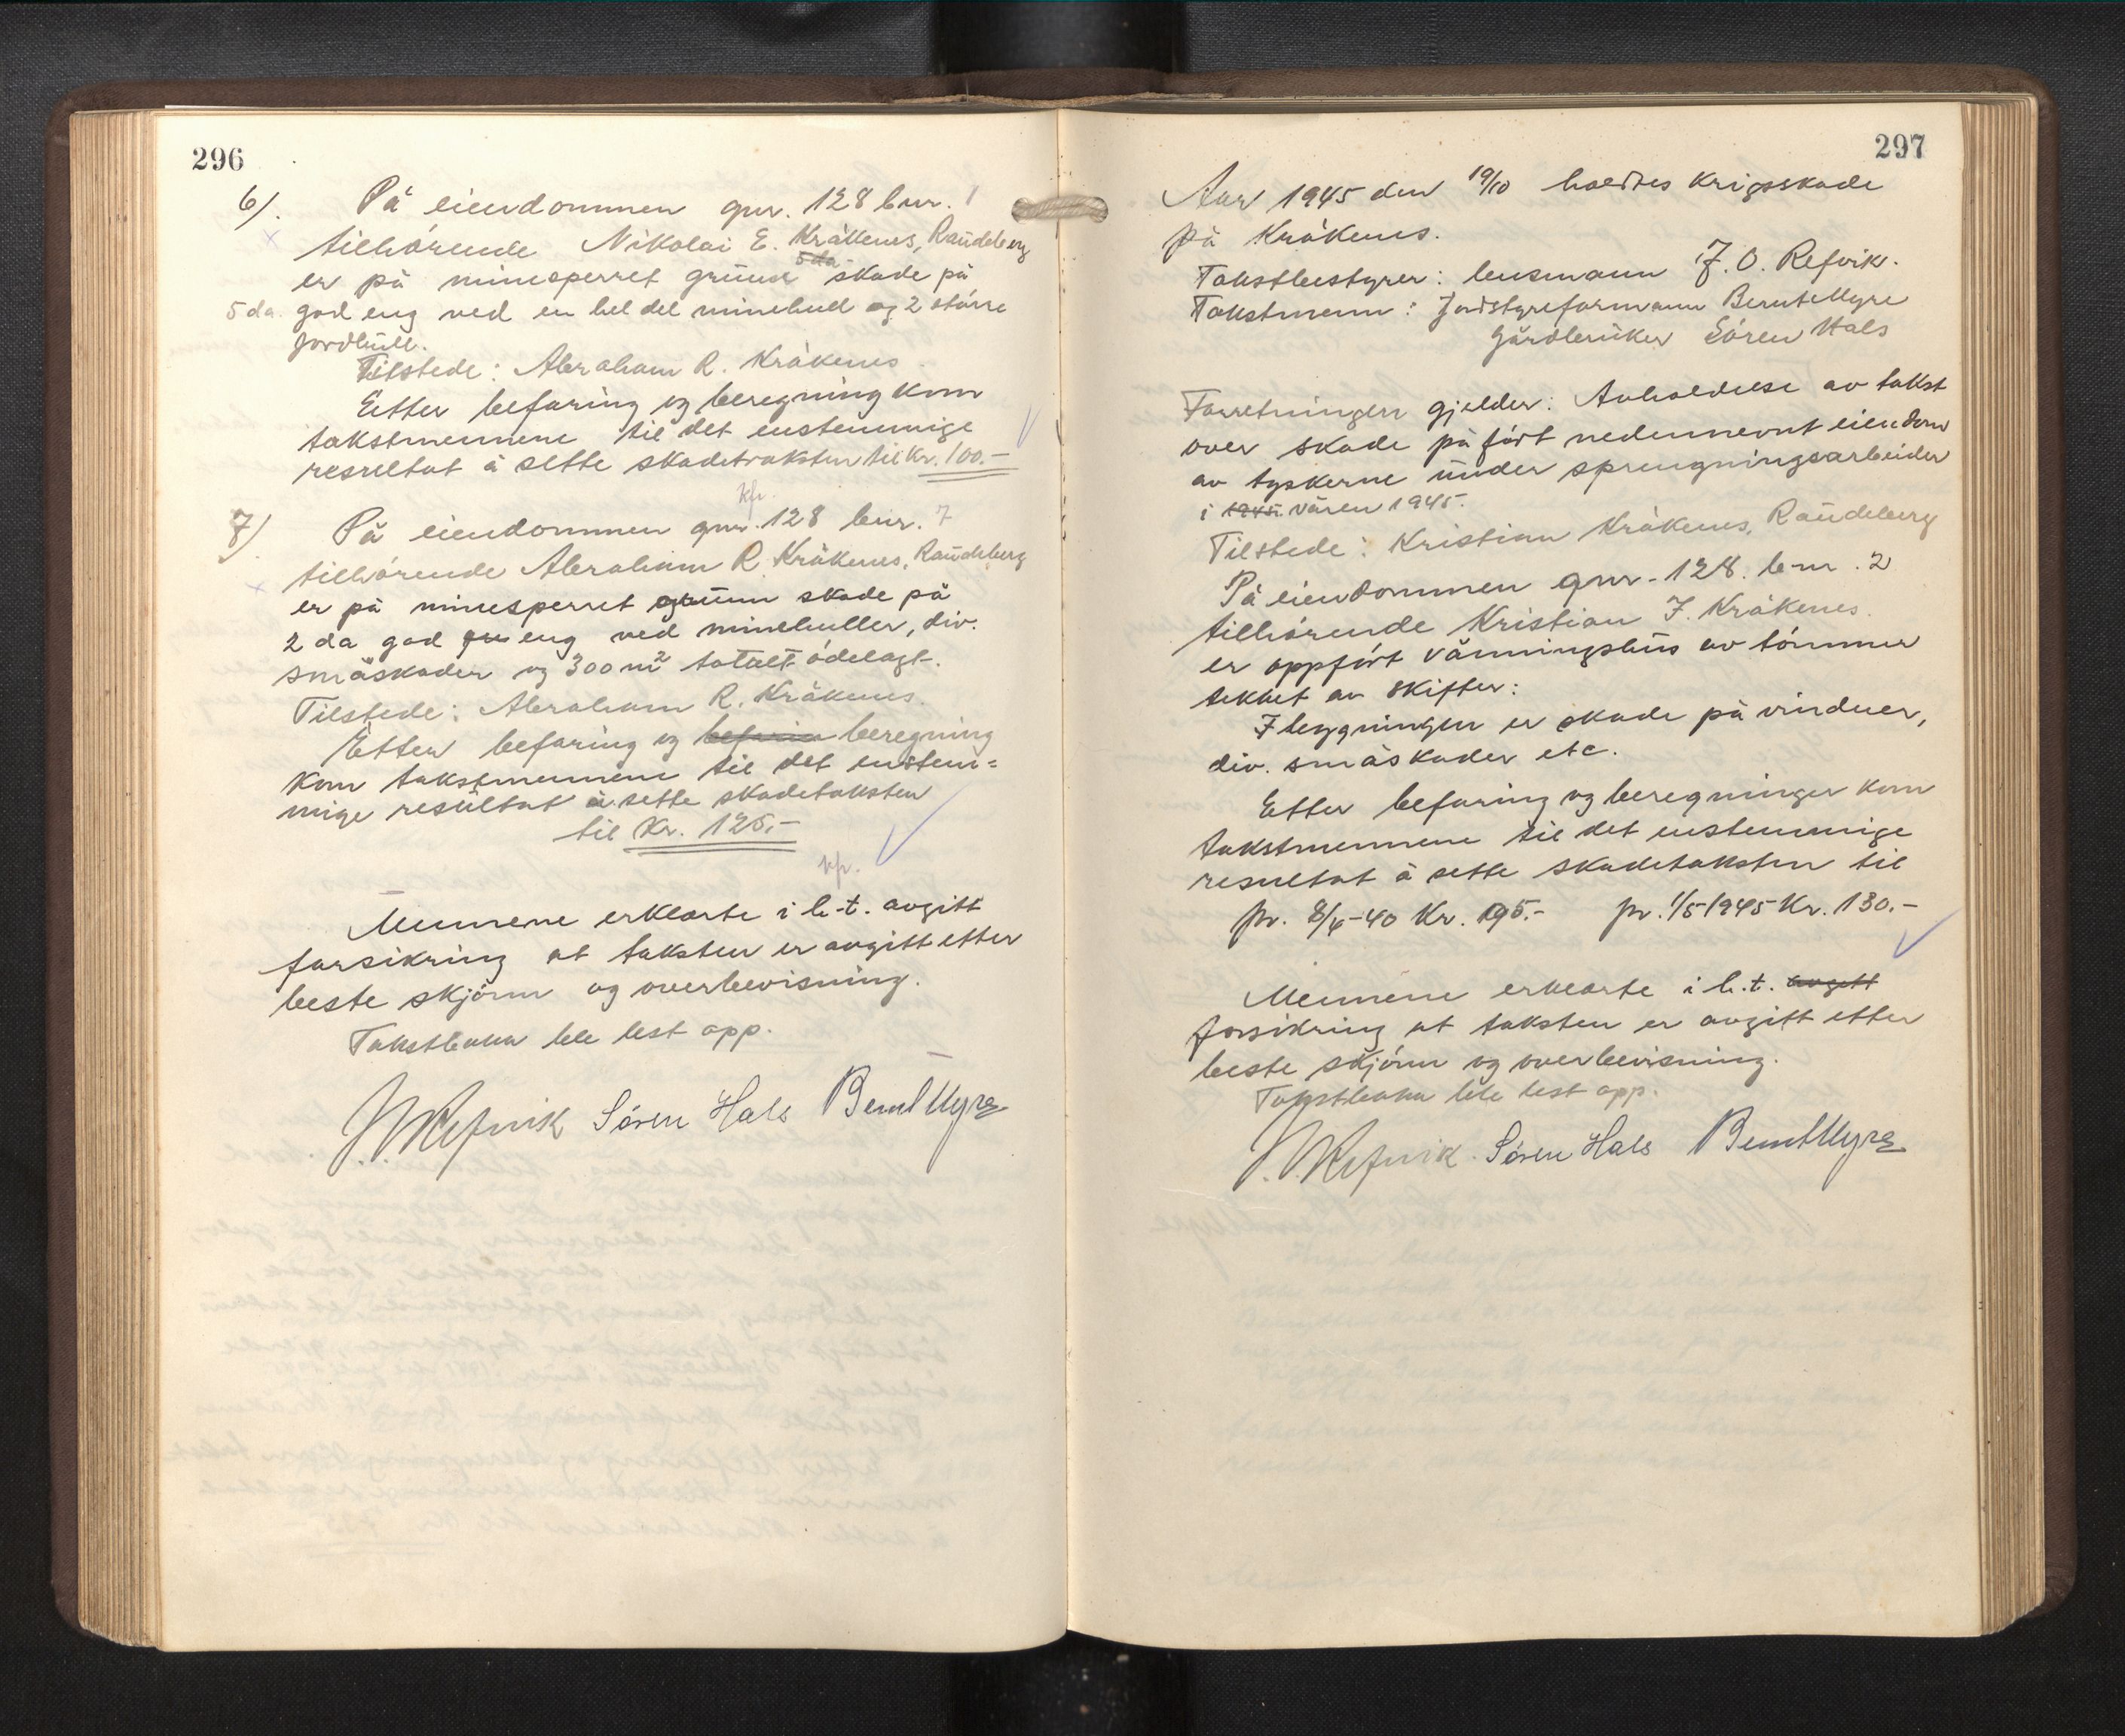 296
6). På eiendommen gnr. 128 bnr. 1
tilhørende Nikolai E. Kråkenes, Raudeberg
5 da
er på minesperret grunn skade på
5 da. god eng ved en hel del minehull og 2 større
jordhull.
Tilstede: Abraham R. Kråkenes
Etter befaring og beregning kom
takstmennene til det enstemmige
resultat å sette skadetaksten til Kr. 100.-
kfr.
7) På eiendommen gnr. 128 bnr. 7
tilhørende Abraham R. Kråkenes, Raudeberg
er på minesperret grunn skade på
2 da god eng ved minehuller, div.
småskader og 300 m2 totalt ødelagt.
Tilstede: Abraham R. Kråkenes.
Etter befaring og befarin beregning
kom takstmennene til det enstem=
mige resultat å sette skadetaksten
til Kr. 125.-
kfr.
Mennene erklærte i h.t. avgitt
forsikring at taksten er avgitt etter
beste skjønn og overbevisning.
Takstboka ble lest opp.
J. O. Refvik Søren Hals Bernt Myre
297
Aar 1945 den 19/10 holdtes krigsskade
på Kråkenes.
Takstbestyrer: lensmann J. O. Refvik.
Takstmenn: Jordstyreformann Bernt Myre
Gårdbruker Søren Hals
Forretningen gjelder: Avholdelse av takst
over skade påført nedennevnt eiendom
av tyskerne under sprengningsarbeider
i 1945 våren 1945.
Tilstede: Kristian Kråkenes, Raudeberg
På eiendommen gnr. 128. b-nr. 2
tilhørende Kristian J. Kråkenes.
er oppført våningshus av tømmer
tekket av skifter:
I bygningen er skade på vinduer,
div. småskader etc.
Etter befaring og beregninger kom
takstmennene til det enstemmige
resultat å sette skadetaksten til
pr. 8/4-40 Kr. 195.- pr. 1/5 1945 Kr. 130.-
Mennene erklærte i h.t. avgitt
forsikring at taksten er avgitt etter
beste skjønn og overbevisning.
Takstboka ble lest opp.
J. O. Refvik. Søren Hals Bernt Myre